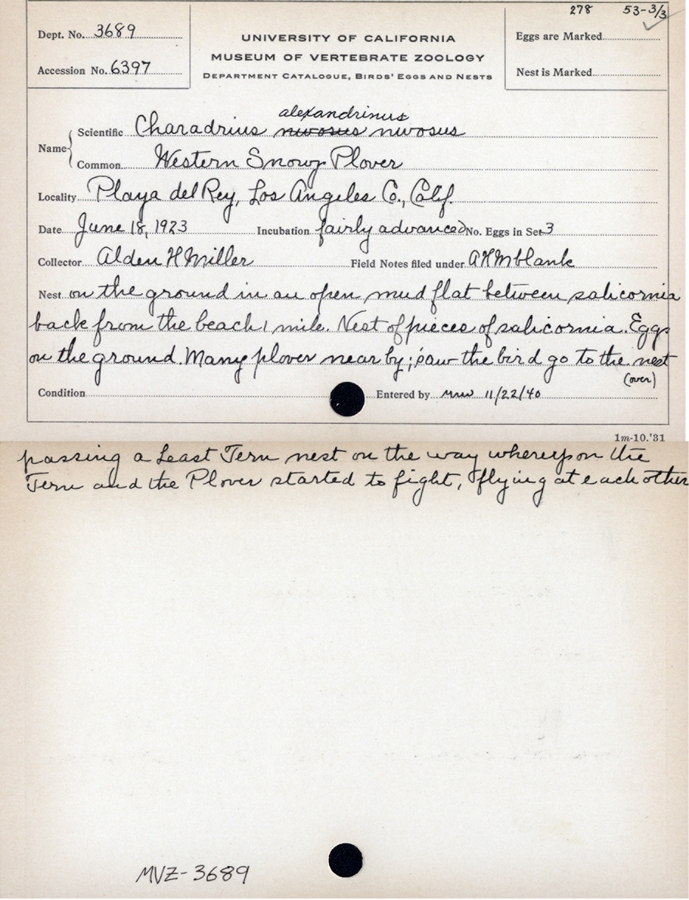 278 53-3/3
Dept. No. 3689
Accession No. 6397
UNIVERSITY OF CALIFORNIA
MUSEUM OF VERTEBRATE ZOOLOGY
DEPARTMENT CATALOGUE, BIRDS' EGGS AND NESTS
Eggs are Marked
Nest is Marked
alexandrinus
Name Scientific Charadrius nivosus nivosus
Common Western Snowy Plover
Locality Playa del Rey, Los Angeles Co., Calif.
Date June 18, 1923 Incubation fairly advanced No. Eggs in Set 3
Collector Alden H Miller Field Notes filed under AHM blank
Nest on the ground in an open mud flat between salicornia
back from the beach 1 mile. Nest of pieces of salicornia. Eggs
on the ground. Many plover near by; saw the bird go to the nest
(over)
Condition Entered by mww 11/22/40
1m-10.'31
passing a Least Tern nest on the way whereupon the
Tern and the Plover started to fight, flying at each other
MVZ-3689